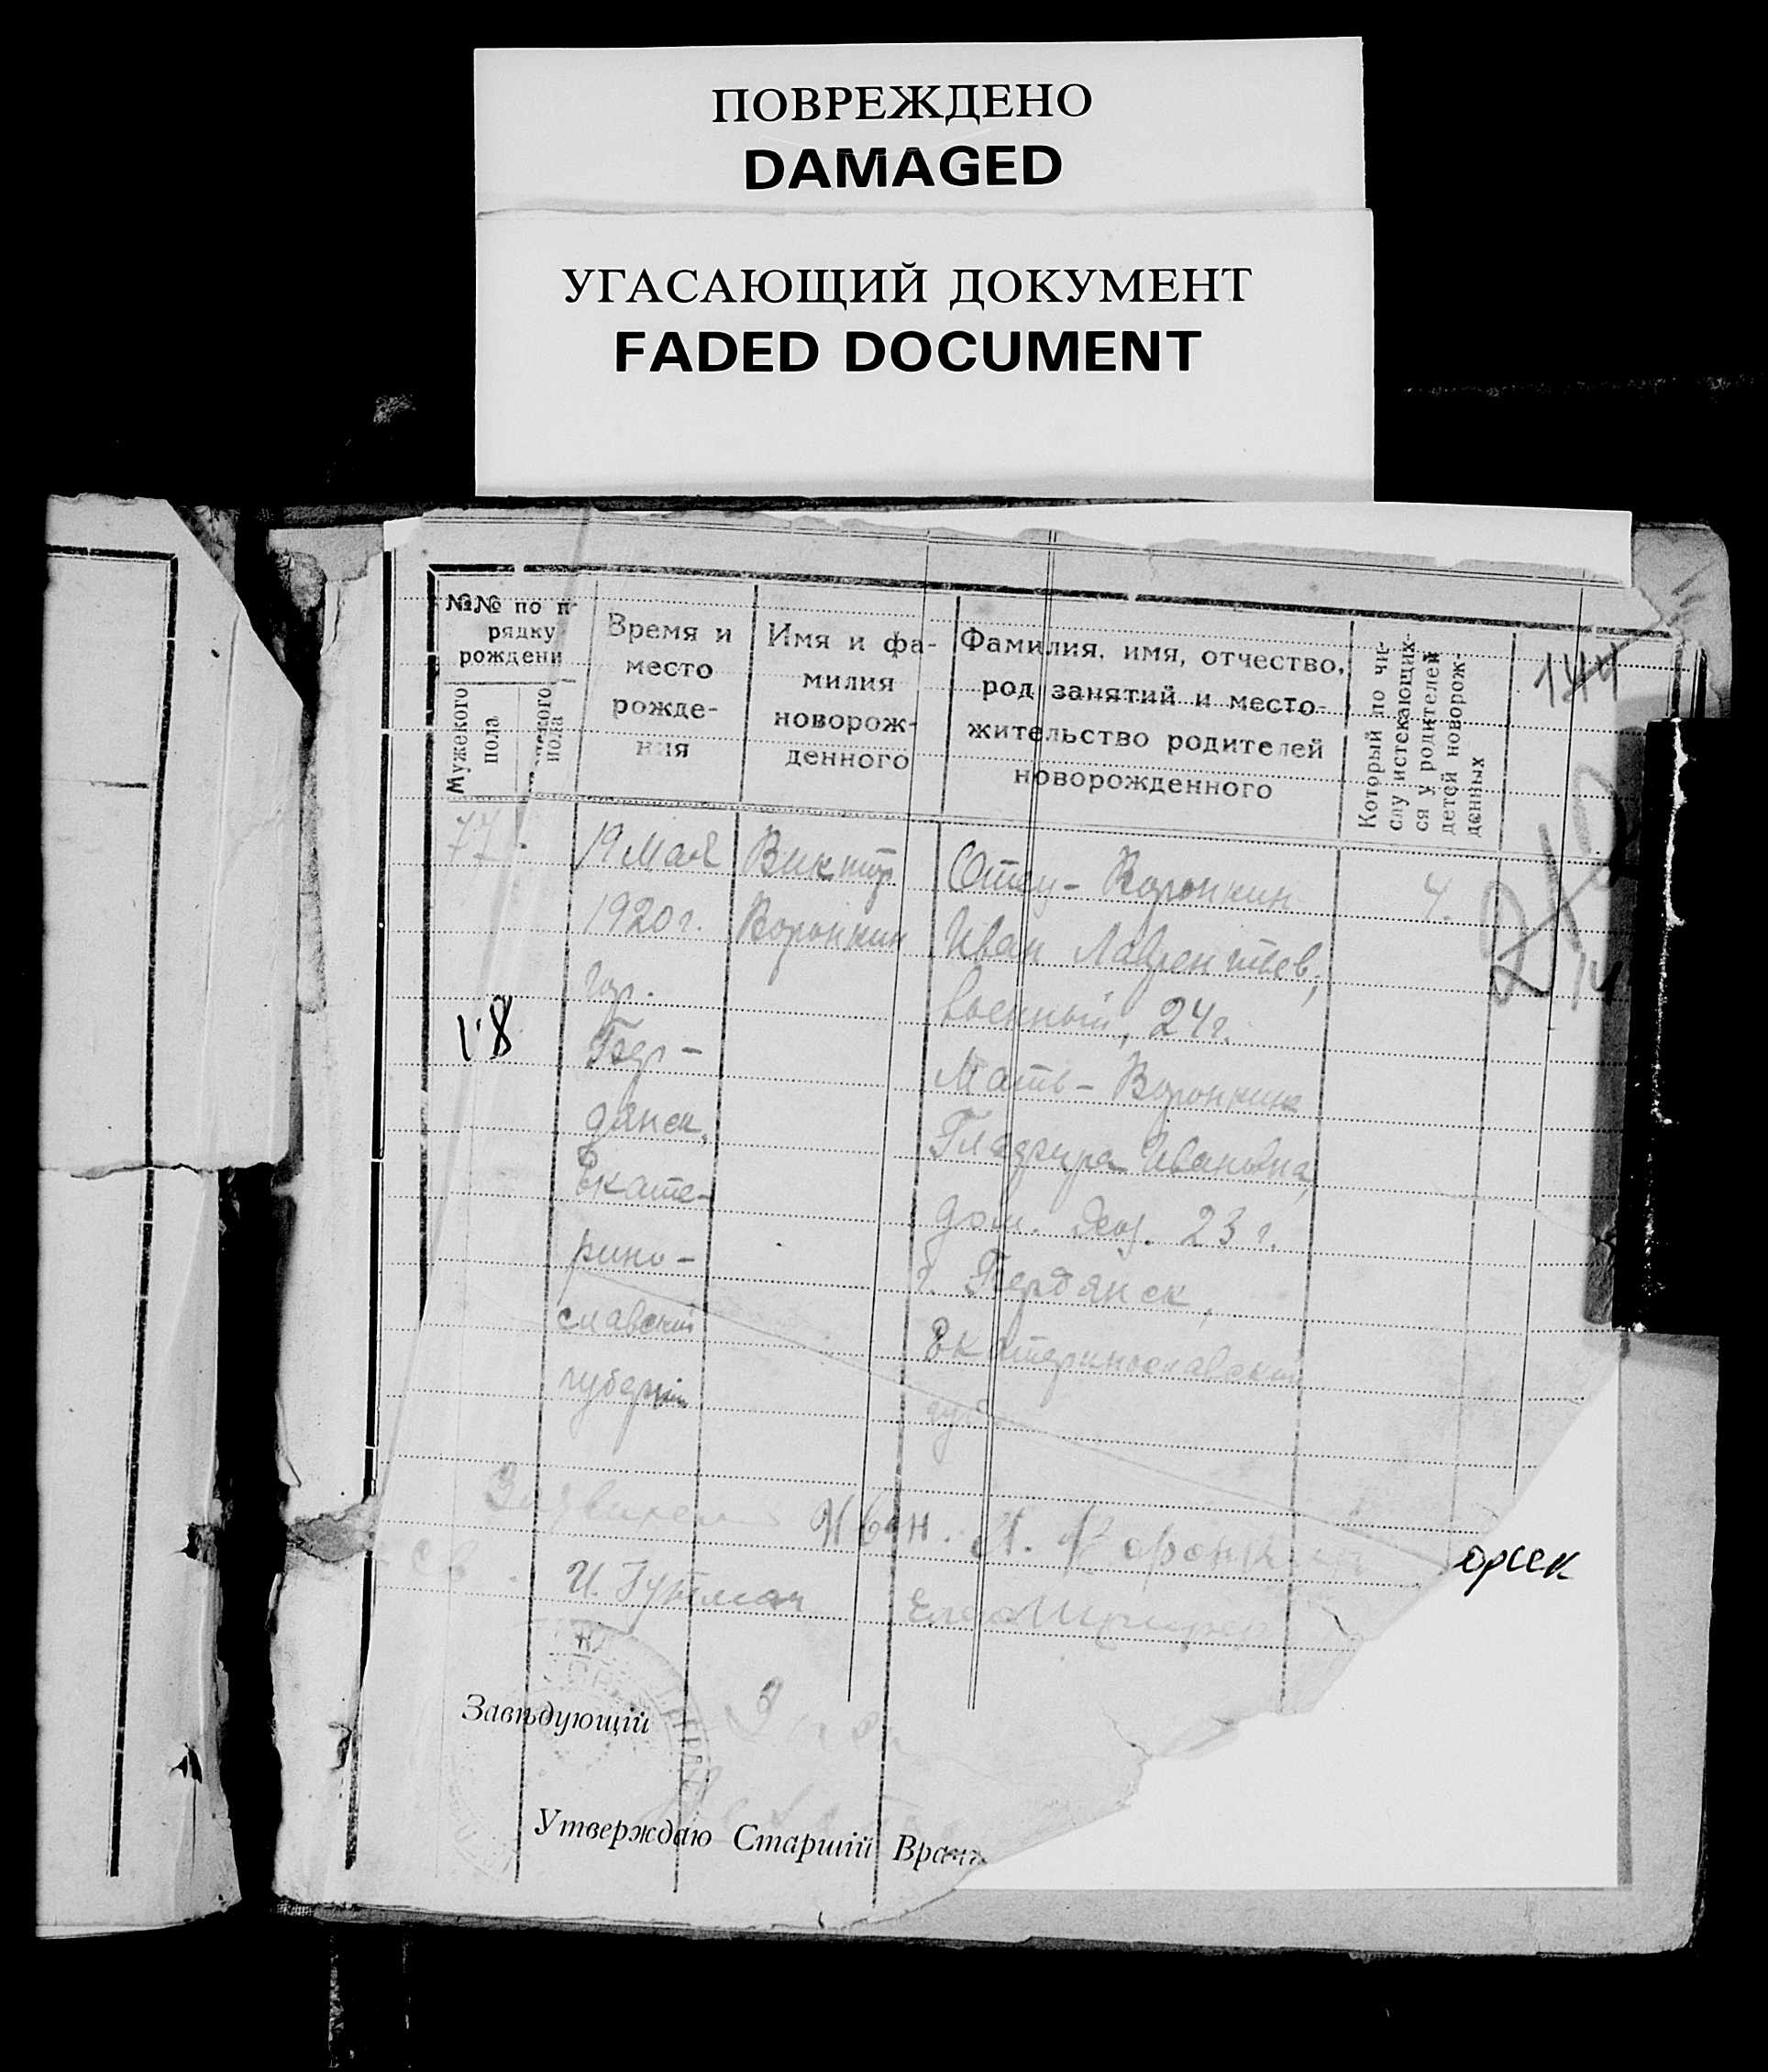 ПОВРЕЖДЕНО
DAMAGED
УГАСАЮЩИЙ ДОКУМЕНТ
FADED DOCUMENT
№№ по п
рядку
рождени
Мужекого
пола
нского
пола
Время и
место
рожде-
ния
Имя и фа-
милия
новорож-
денного
Фамилия, имя, отчество,
род занятий и место-
жительство родителей
новорожденного
Который по чи-
слу истекающих-
ся у родителей
детей новорож-
денных
144
77
19 Мая
1920 г.
гор.
Бер-
дянск.
Екате-
рино-
славский
губернии
18
Виктор
Воронкин
Отец - Воронкин
Иван Лаврентьев,
военный, 24 г.
Мать - Воронкина
Глафира Ивановна,
дом. хоз. 23 г.
г. Бердянск,
Екатеринославской
губ
4.
14
Иван. Л. Воронкин
И. Гутман
орсек
Завѣдующій
Утверждаю Старшій Врачъ